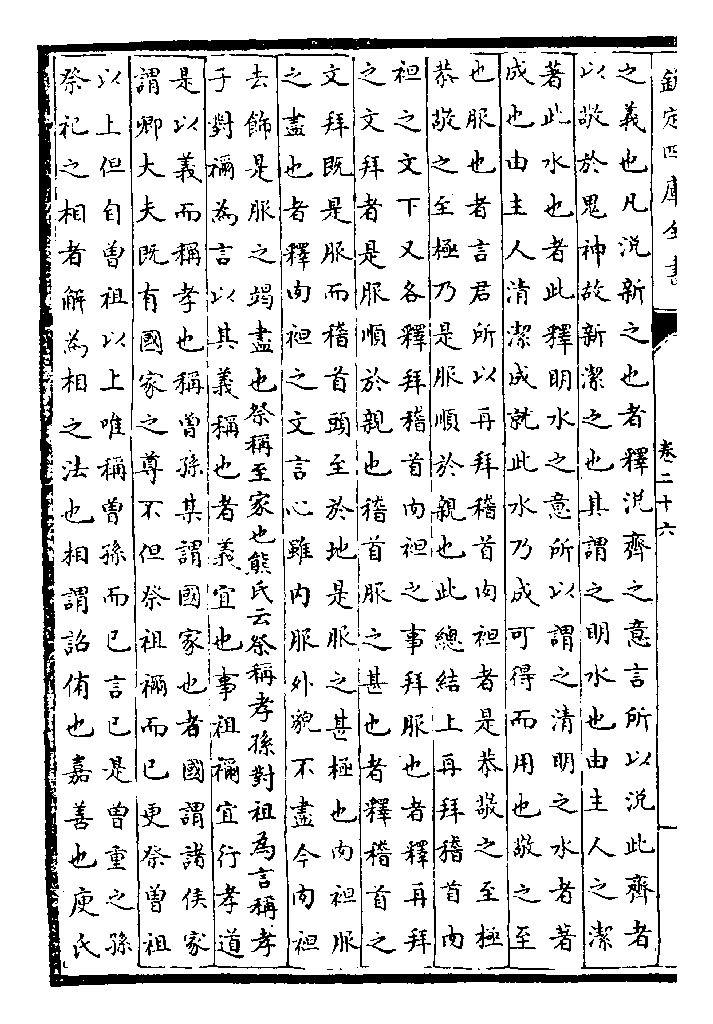 欽定四庫全書
卷二十六
之義也凡涗新之也者釋涗齊之意言所以涗此齊者
以敬於鬼神故新潔之也其謂之明水也由主人之潔
著此水也者此釋明水之意所以謂之清明之水者著
成也由主人清潔成就此水乃成可得而用也敬之至
也服也者言君所以再拜稽首肉袒者是恭敬之至極
恭敬之至極乃是服順於親也此總結上再拜稽首肉
袒之文下又各釋拜稽首肉袒之事拜服也者釋再拜
之文拜者是服順於親也稽首服之甚也者釋稽首之
文拜既是服而稽首頭至於地是服之甚極也肉袒服
之盡也者釋肉袒之文言心雖内服外貌不盡今肉袒
去飾是服之竭盡也祭稱至家也熊氏云祭稱孝孫對祖為言稱孝
子對禰為言以其義稱也者義宜也事祖禰宜行孝道
是以義而稱孝也稱曾孫某謂國家也者國謂諸侯家
謂卿大夫既有國家之尊不但祭祖禰而已更祭曾祖
以上但自曾祖以上唯稱曾孫而已言已是曾重之孫
祭祀之相者解為相之法也相謂詔侑也嘉善也庾氏